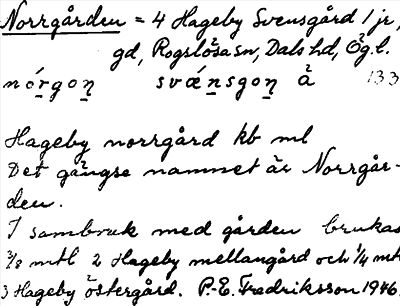 Norrgården = 4 Hageby Svensgård 1 jr,
gd, Rogslösa sn, Dals hd, Ög. l.
nórgon̥ svǽnsgon̥ å 133
Hageby norrgård kb ml
Det gängse namnet är Norrgår-
den.
I sambruk med gården brukas
3/8 mtl 2 Hageby mellangård och 1/4 mtl
3 Hageby östergård. P.-E. Fredriksson 1946.